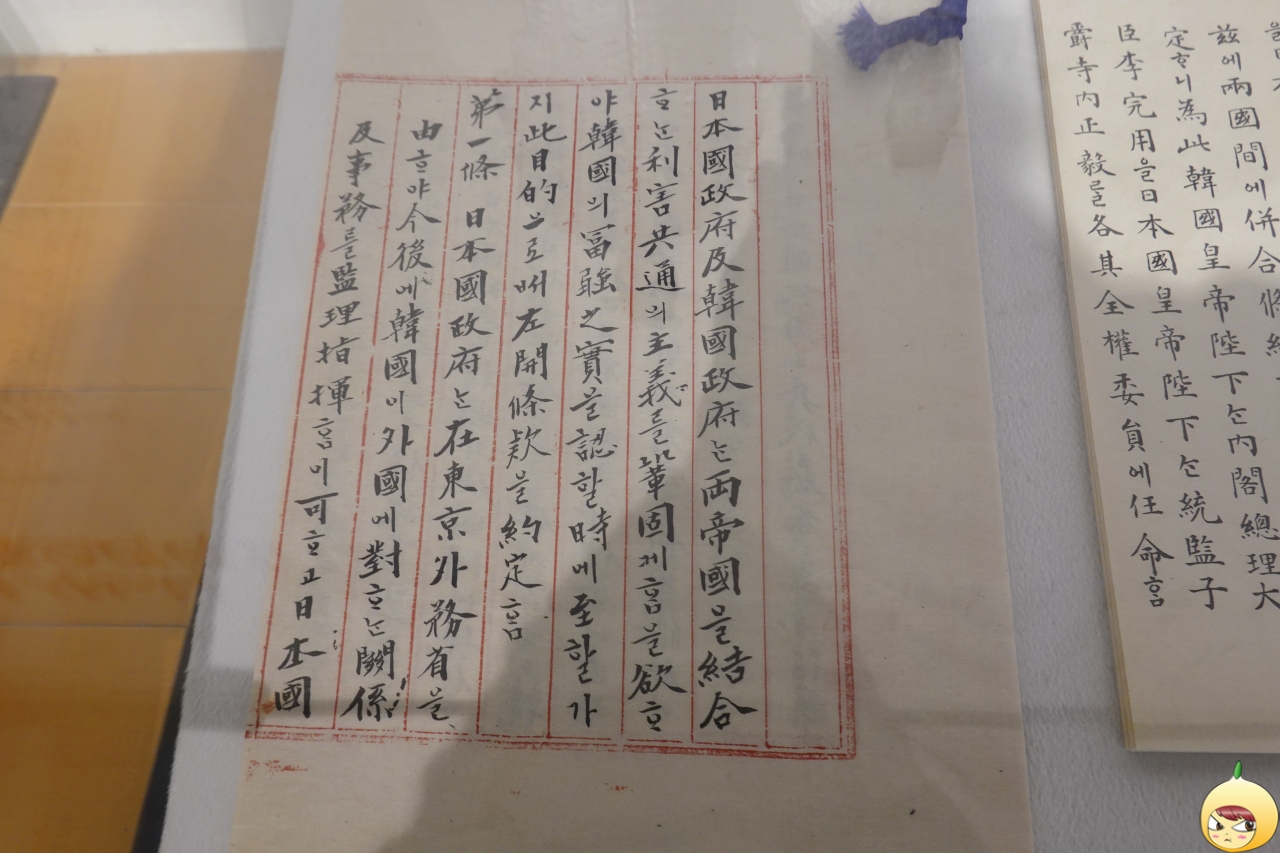 日本國政府及韓國政府는両帝國을結合
ᄒᆞ는利害共通의主義를鞏固케ᄒᆞᆷ을欲ᄒᆞ
야韓國의冨强之實을認할時에至할가
지此目的으로ᄡᅥ左開條欵을約定ᄒᆞᆷ
第一條 日本國政府는在東京外務省을
由ᄒᆞ야今後에韓國이外國에對ᄒᆞ는關係
及事務를監理指揮ᄒᆞᆷ이可ᄒᆞ고日本國
玆에兩國間에併合條
定ᄒᆞ니為此韓國皇帝陛下는內閣總理大
臣李完用을日本國皇帝陛下는統監子
爵寺內正毅를各其全權委員에任命ᄒᆞᆷ